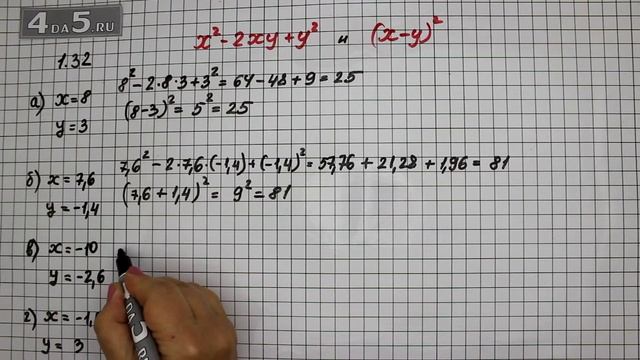 4 DA 5.RU
x² - 2xy + y² и (x-y)²
1.32
а) x = 8
y = 3
8² - 2·8·3 + 3² = 64 - 48 + 9 = 25
(8-3)² = 5² = 25
б) x = 7,6
y = -1,4
7,6² - 2·7,6·(-1,4) + (-1,4)² = 57,76 + 21,28 + 1,96 = 81
(7,6 + 1,4)² = 9² = 81
в) x = -10
y = -2,6
г) x = -1,
y = 3